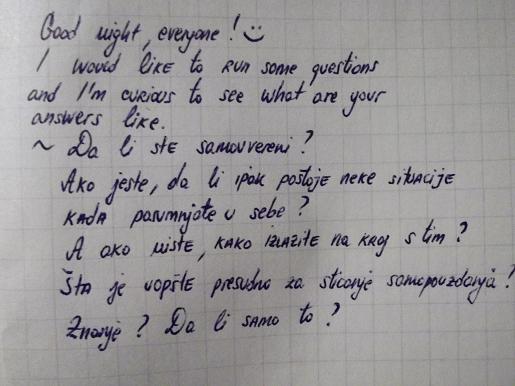 Good night, everyone! :)
I would like to run some questions
and I'm curious to see what are your
answers like.
~ Da li ste samouvereni?
Ako jeste, da li ipak postoje neke situacije
kada posumnjate u sebe?
A ako niste, kako izlazite na kraj s tim?
Šta je uopšte presudno za sticanje samopouzdanja?
Znanje? Da li samo to?